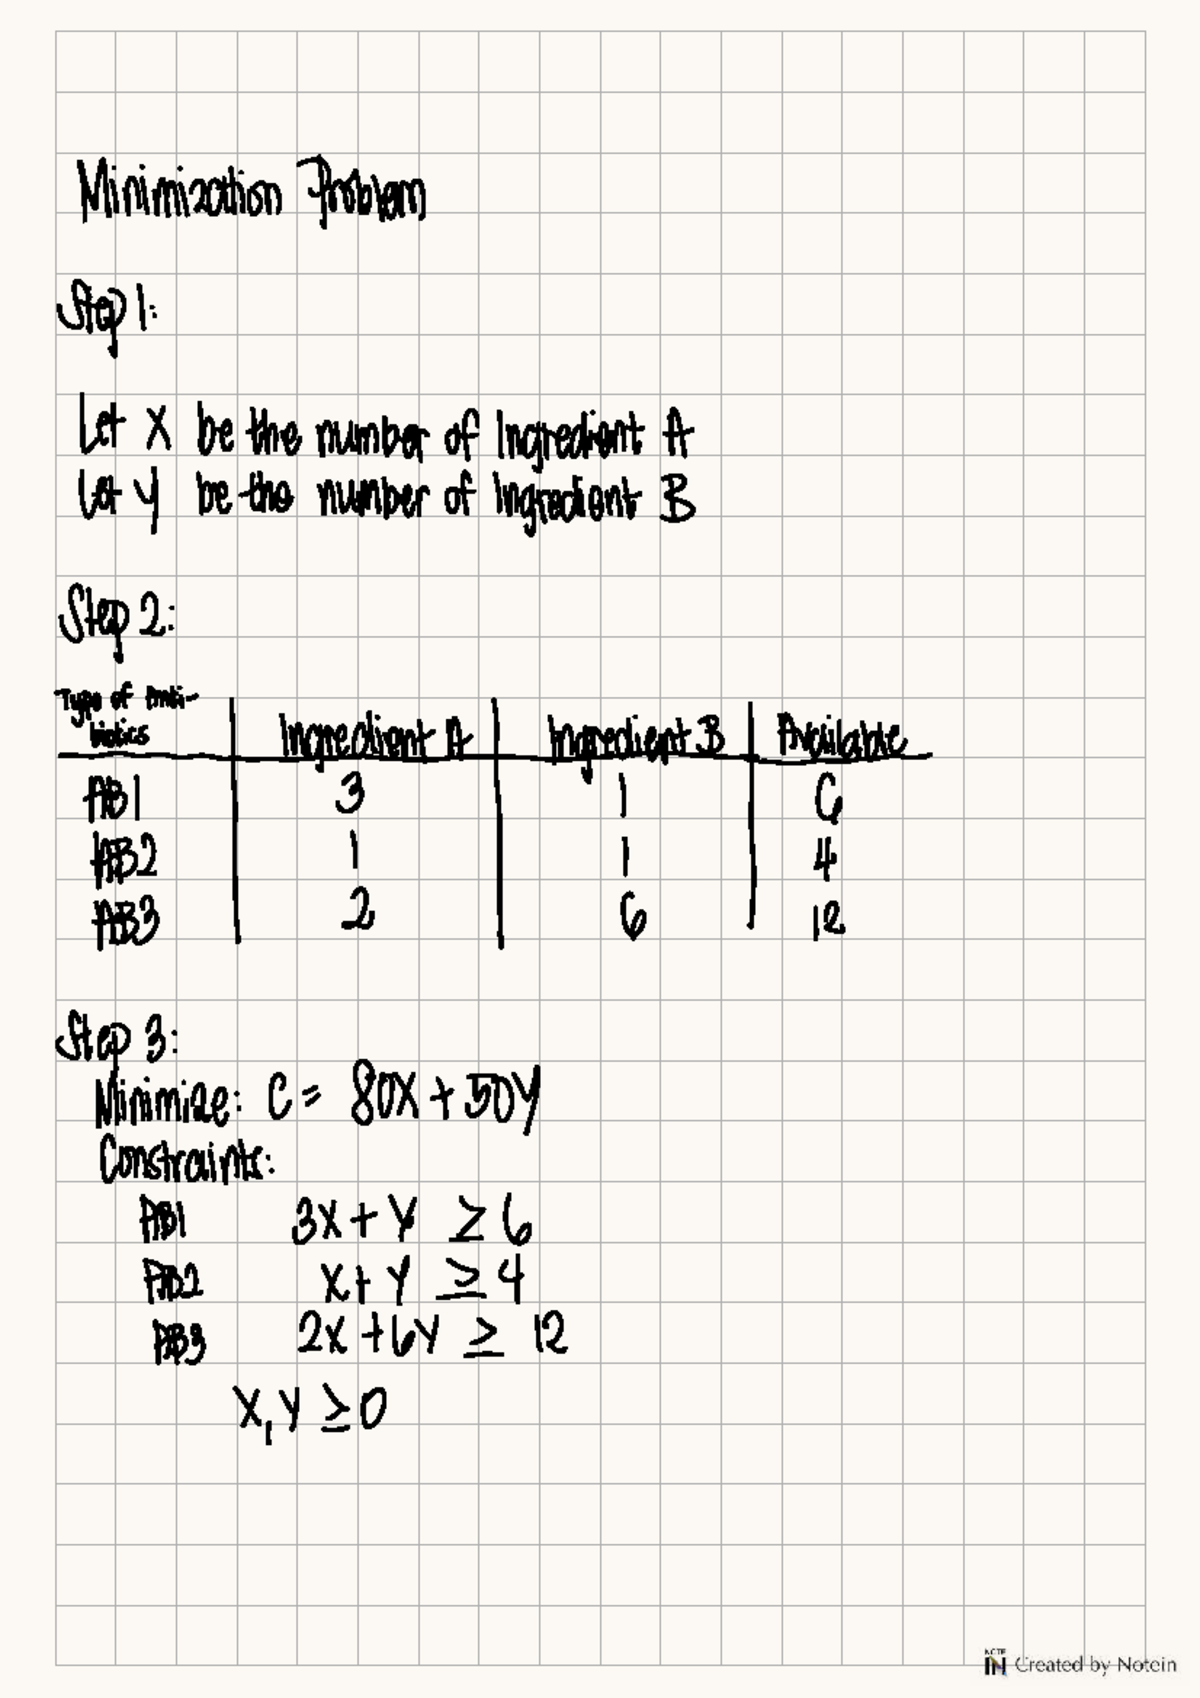 Minimization Problem
Step 1:
Let X be the number of Ingredient A
Let Y be the number of Ingredient B
Step 2:
Type of Anti-
biotics
Ingredient A
Ingredient B
Available
AB1 3 1 6
AB2 1 1 4
AB3 2 6 12
Step 3:
Minimize: C = 80X + 50Y
Constraints:
AB1 3X + Y ≥ 6
AB2 X + Y ≥ 4
AB3 2X + 6Y ≥ 12
X, Y ≥ 0
NOTE
IN Created by Notein